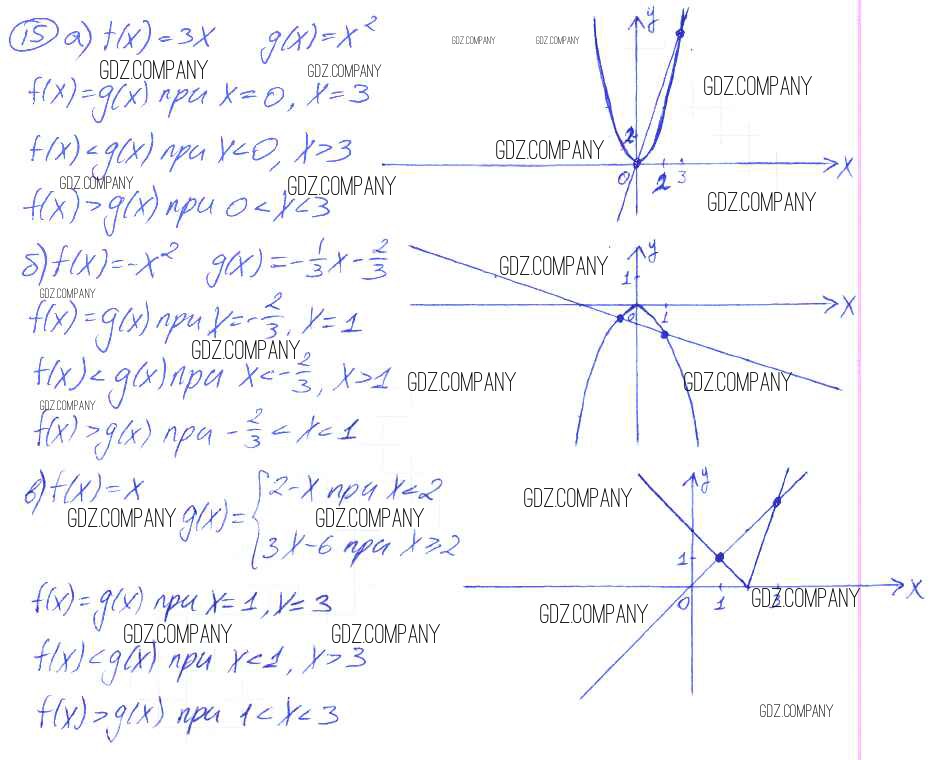 15 а) f(x)=3x g(x)=x²
GDZ.COMPANY GDZ.COMPANY
GDZ.COMPANY GDZ.COMPANY
f(x)=g(x) при x=0, x=3
GDZ.COMPANY
f(x)<g(x) при x<0, x>3
GDZ.COMPANY
GDZ.COMPANY GDZ.COMPANY
f(x)>g(x) при 0<x<3
GDZ.COMPANY
y
2
0 2 3 x
б) f(x)=-x² g(x)=-1/3x-2/3
GDZ.COMPANY
GDZ.COMPANY
f(x)=g(x) при x=-2/3, x=1
GDZ.COMPANY
f(x)<g(x) при x<-2/3, x>1
GDZ.COMPANY GDZ.COMPANY
GDZ.COMPANY
f(x)>g(x) при -2/3<x<1
y
1
0 1 x
в) f(x)=x
g(x)={2-x при x<2
3x-6 при x≥2
GDZ.COMPANY GDZ.COMPANY GDZ.COMPANY
f(x)=g(x) при x=1, x=3
GDZ.COMPANY GDZ.COMPANY
f(x)<g(x) при x<1, x>3
f(x)>g(x) при 1<x<3
y
1
0 1 3 x
GDZ.COMPANY
GDZ.COMPANY
GDZ.COMPANY